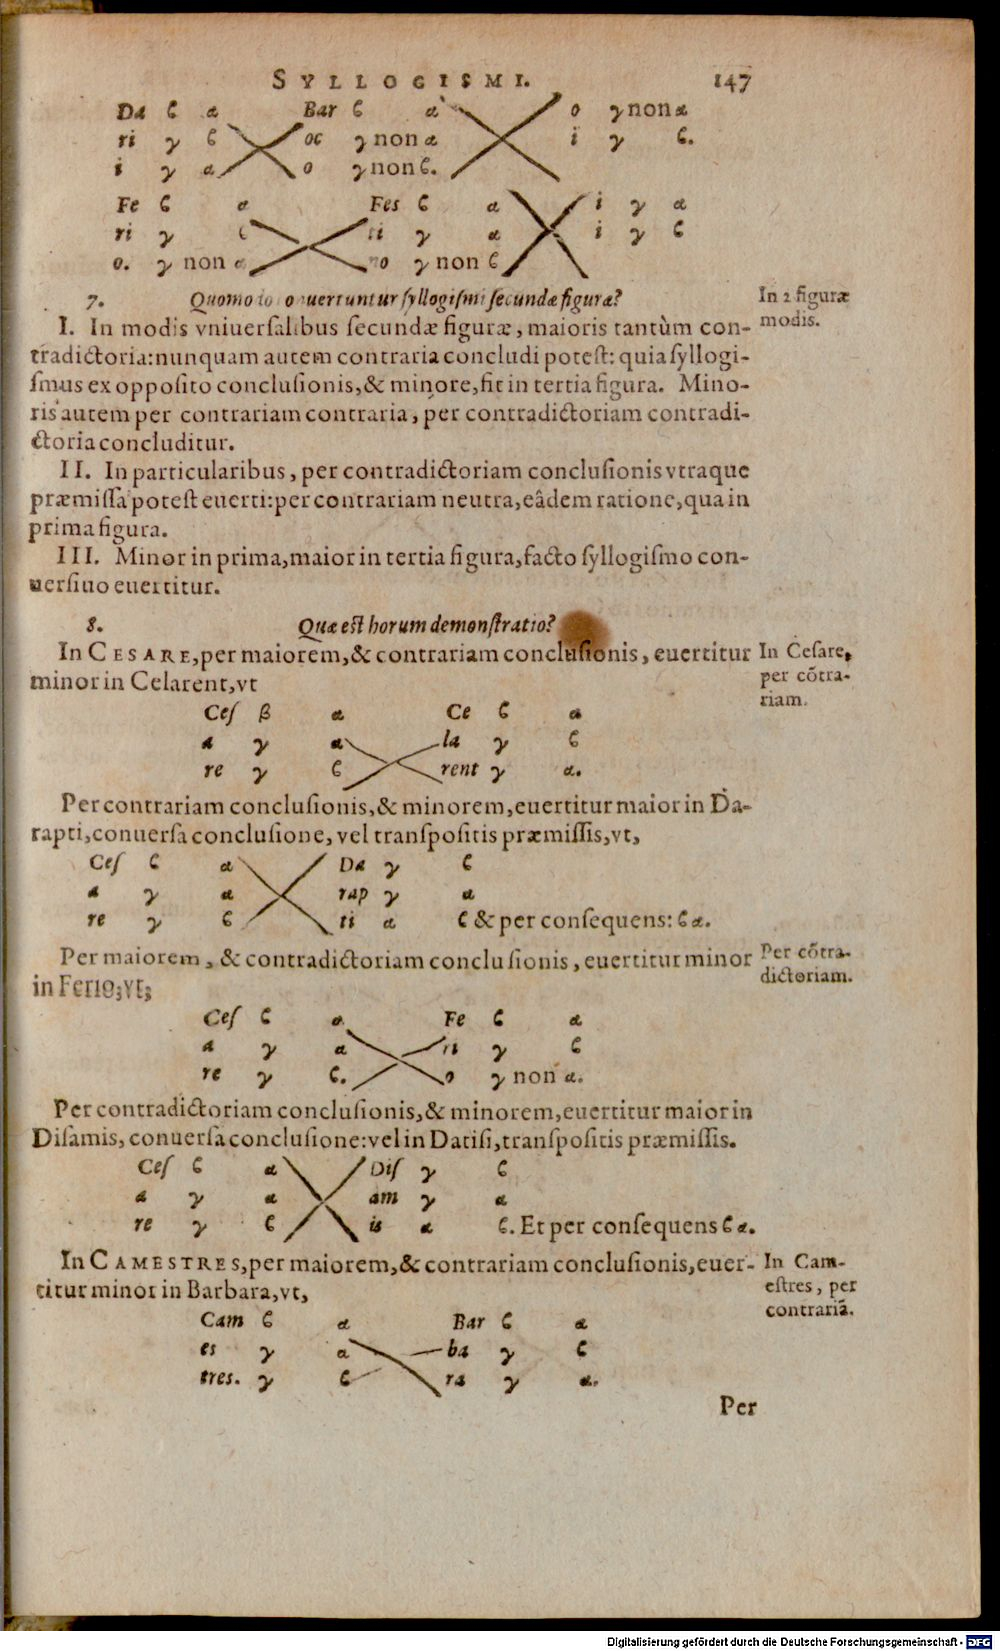 SYLLOGISMI. 147
Da ϐ α Bar ϐ α o γ non α
ri γ ϐ oc γ non α i γ ϐ.
i γ α o γ non ϐ.
Fe ϐ α Fes ϐ α i γ α
ri γ ϐ ti γ α i γ ϐ
o. γ non α no γ non ϐ
7. Quomodo conuertuntur ſyllogiſmi ſecundæ figuræ?
In 2 figuræ
modis.
I. In modis vniuerſalibus ſecundæ figuræ, maioris tantùm con-
tradictoria: nunquam autem contraria concludi poteſt: quia ſyllogi-
ſmus ex oppoſito concluſionis, & minore, fit in tertia figura. Mino-
ris autem per contrariam contraria, per contradictoriam contradi-
ctoria concluditur.
II. In particularibus, per contradictoriam concluſionis vtraque
præmiſſa poteſt euerti: per contrariam neutra, eâdem ratione, qua in
prima figura.
III. Minor in prima, maior in tertia figura, facto ſyllogiſmo con-
uerſiuo euertitur.
8. Quæ eſt horum demonſtratio?
In CESARE, per maiorem, & contrariam concluſionis, euertitur
minor in Celarent, vt
In Ceſare,
per cōtra-
riam.
Ceſ β α Ce ϐ α
a γ α la γ ϐ
re γ ϐ rent γ α.
Per contrariam concluſionis, & minorem, euertitur maior in Da-
rapti, conuerſa concluſione, vel tranſpoſitis præmiſſis, vt,
Ceſ ϐ α Da γ ϐ
a γ α rap γ α
re γ ϐ ti α ϐ & per conſequens: ϐ α.
Per maiorem, & contradictoriam concluſionis, euertitur minor
in Ferio, vt,
Per cōtra-
dictoriam.
Ceſ ϐ α Fe ϐ α
a γ α ri γ ϐ
re γ ϐ. o γ non α.
Per contradictoriam concluſionis, & minorem, euertitur maior in
Diſamis, conuerſa concluſione: vel in Datiſi, tranſpoſitis præmiſſis.
Ceſ ϐ α Diſ γ ϐ
a γ α am γ α
re γ ϐ is α ϐ. Et per conſequens ϐ α.
In CAMESTRES, per maiorem, & contrariam concluſionis, euer-
titur minor in Barbara, vt,
In Cam-
eſtres, per
contrariā.
Cam ϐ α Bar ϐ α
es γ α ba γ ϐ
tres. γ ϐ ra γ α.
Per
Digitalisierung gefördert durch die Deutsche Forschungsgemeinschaft - DFG